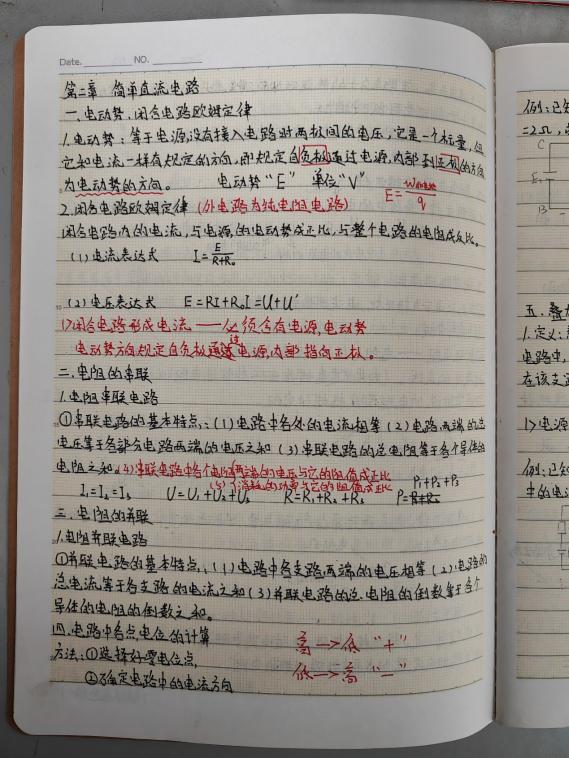 Date. NO.
第二章 简单直流电路
一、电动势、闭合电路欧姆定律
1.电动势：等于电源没有接入电路时两极间的电压，它是一个标量，但
它和电流一样有规定的方向，即规定自负极通过电源内部到正极的方向
为电动势的方向。 电动势“E” 单位“V” E=W/q
2.闭合电路欧姆定律（外电路为纯电阻电路）
闭合电路内的电流，与电源的电动势成正比，与整个电路的电阻成反比。
(1)电流表达式 I=E/R+R₀
(2)电压表达式 E=RI+R₀I=U+U′
1>闭合电路形成电流——必须含有电源，电动势
电动势方向规定自负极通过电源内部指向正极。
二、电阻的串联
1.电阻串联电路
①串联电路的基本特点：(1)电路中各处的电流相等(2)电路两端的总
电压等于各部分电路两端的电压之和(3)串联电路的总电阻等于各个导体的
电阻之和(4)串联电路中各个电阻两端的电压与它的阻值成正比
(5)各个消耗的功率与它的阻值成正比
I₁=I₂=I₃ U=U₁+U₂+U₃ R=R₁+R₂+R₃ P=P₁+P₂+P₃
三、电阻的并联
1.电阻并联电路
①并联电路的基本特点：(1)电路中各支路两端的电压相等(2)电路的
总电流等于各支路的电流之和(3)并联电路的总电阻的倒数等于各个
导体的电阻的倒数之和。
四、电路中各点电位的计算
方法：①选择好零电位点，
②确定电路中的电流方向
高→低“+”
低→高“−”
例：已知
=2Ω，
C
E₁
B
五、叠加
1.定义：
电路中，
在该支
1>电源
例：已知
中的电流